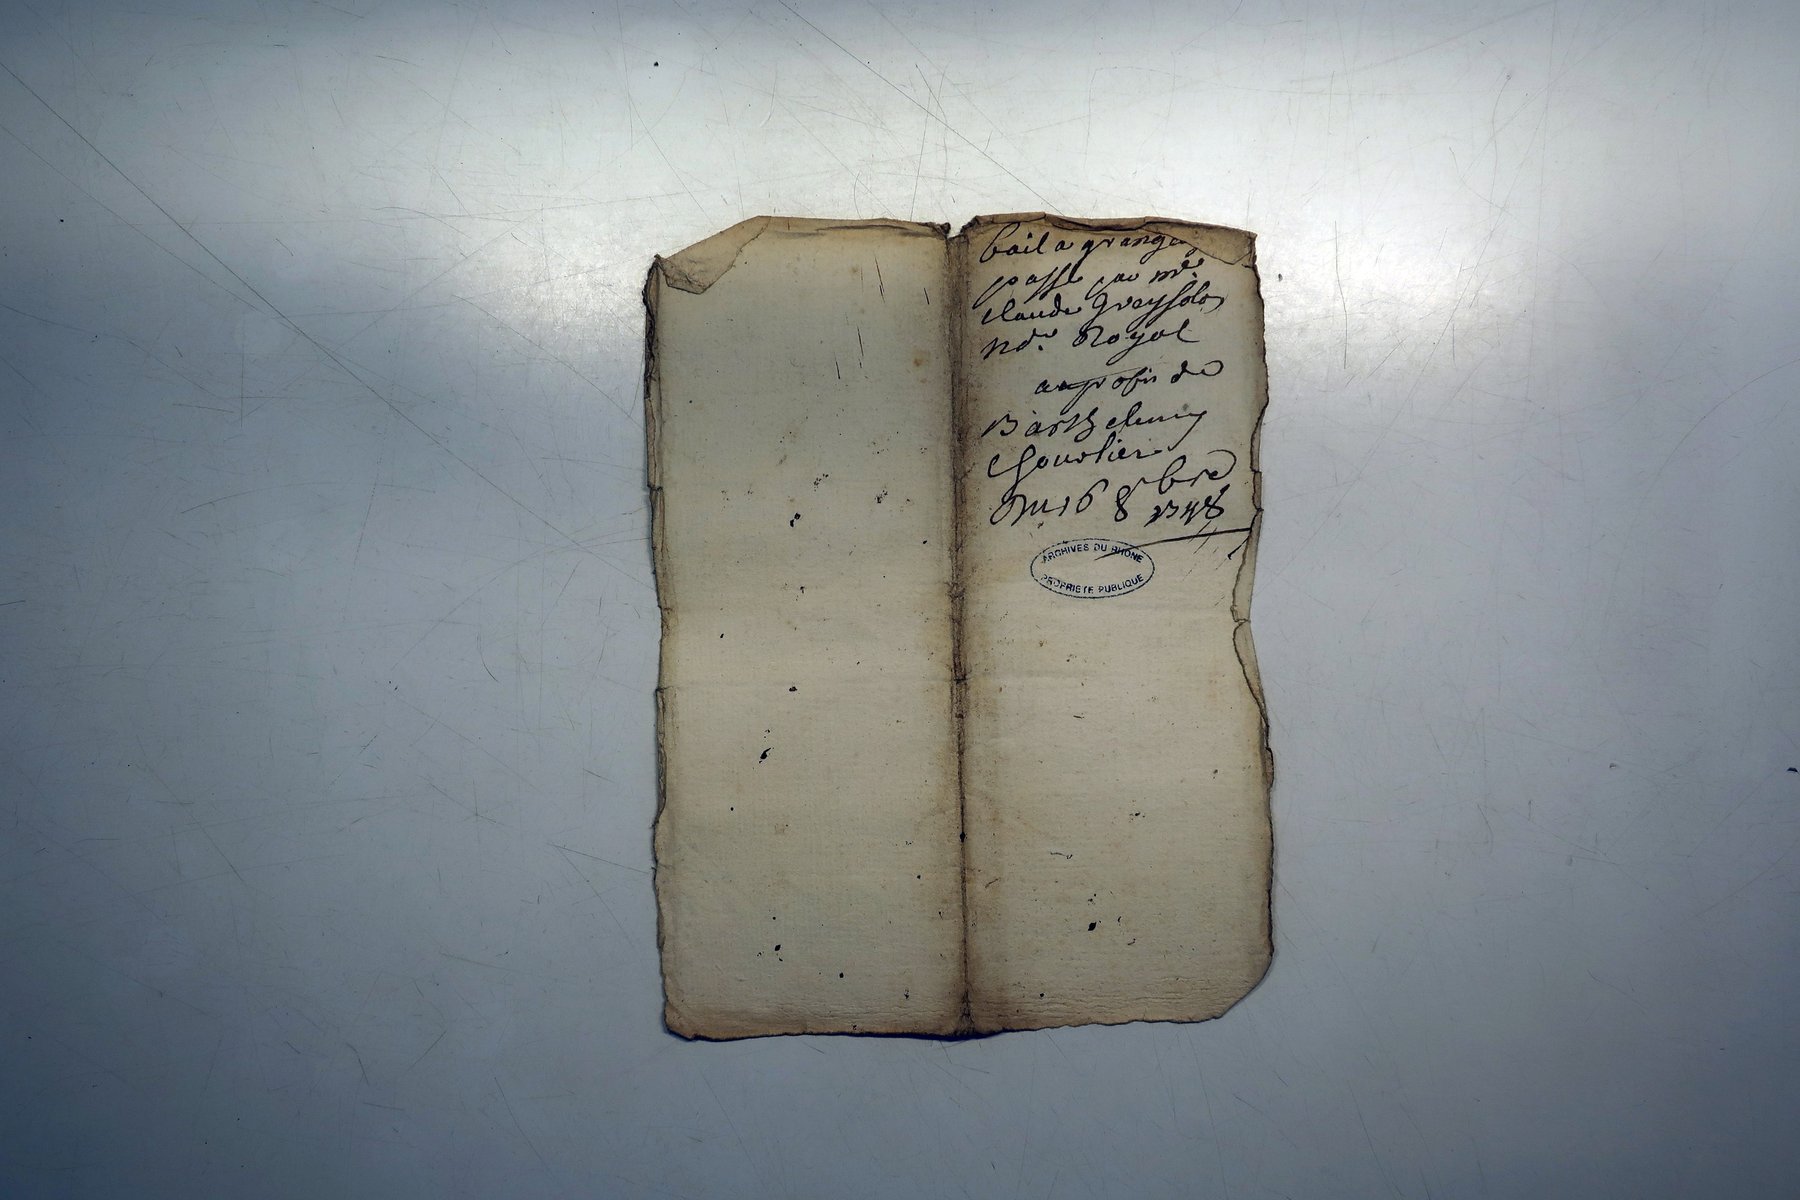 bail a grange
passé par me
Claude Greysolon
nore Royal
au profit de
Barthelemy
du 16 8bre
1748
ARCHIVES DU RHONE
PROPRIETE PUBLIQUE